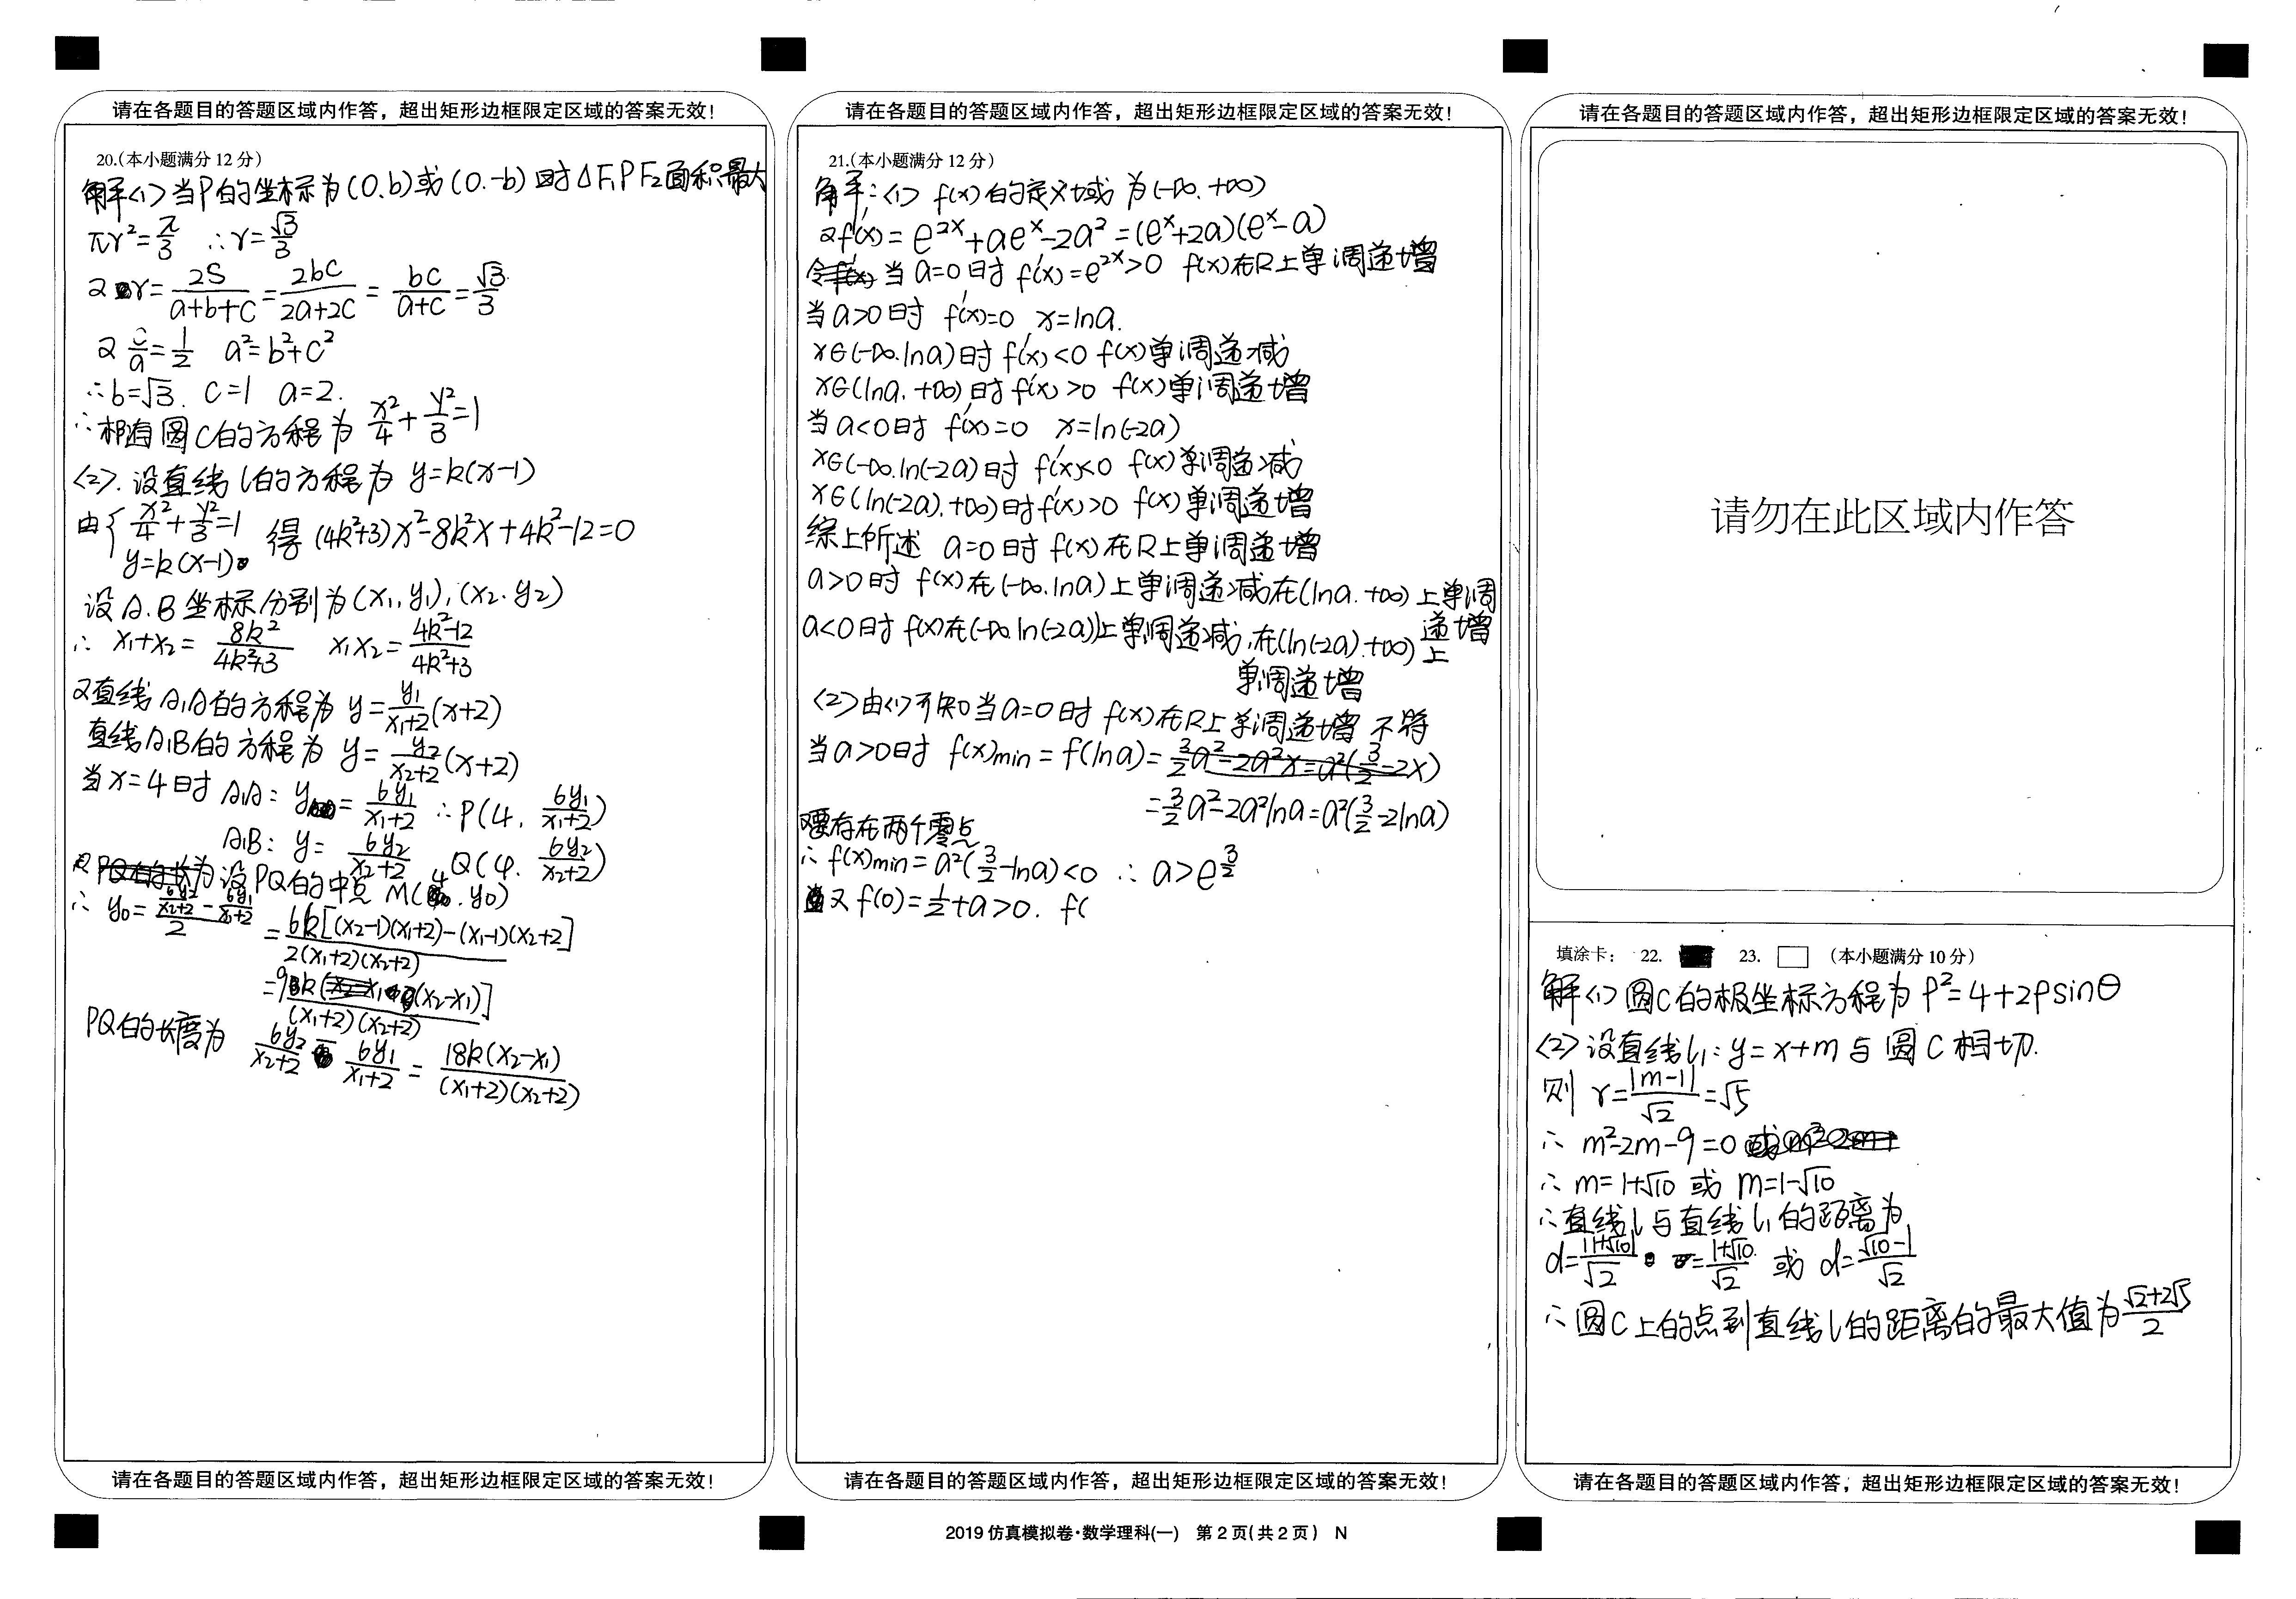 请在各题目的答题区域内作答，超出矩形边框限定区域的答案无效！
20.(本小题满分12分)
解<1>当P的坐标为(0.b)或(0.-b)时△F₁PF₂面积最大
πr²=π/3 ∴r=√3/3
又r=2S/(a+b+c)=2bc/(2a+2c)=bc/(a+c)=√3/3
又 c/a=1/2 a²=b²+c²
∴b=√3. c=1 a=2.
∴椭圆C的方程为 x²/4+y²/3=1
<2>.设直线l的方程为 y=k(x-1)
由{x²/4+y²/3=1
y=k(x-1) 得 (4k²+3)x²-8k²x+4k²-12=0
设A.B坐标分别为(x₁,y₁),(x₂.y₂)
∴ x₁+x₂=8k²/(4k²+3) x₁x₂=(4k²-12)/(4k²+3)
又直线A₁A的方程为 y=y₁/(x₁+2)(x+2)
直线A₁B的方程为 y=y₂/(x₂+2)(x+2)
当x=4时 A₁A: y=6y₁/(x₁+2) ∴P(4, 6y₁/(x₁+2))
A₁B: y=6y₂/(x₂+2) Q(4, 6y₂/(x₂+2))
设PQ的中点M(4.y₀)
∴ y₀=(6y₂/(x₂+2)-6y₁/(x₁+2))/2 =6k[(x₂-1)(x₁+2)-(x₁-1)(x₂+2)]/2(x₁+2)(x₂+2)
=9k(x₂-x₁)]/(x₁+2)(x₂+2)
PQ的长度为 6y₂/(x₂+2)-6y₁/(x₁+2)=18k(x₂-x₁)/(x₁+2)(x₂+2)
请在各题目的答题区域内作答，超出矩形边框限定区域的答案无效！
请在各题目的答题区域内作答，超出矩形边框限定区域的答案无效！
21.(本小题满分12分)
解:<1> f(x)的定义域为(-∞.+∞)
又f'(x)=e^2x+ae^x-2a²=(e^x+2a)(e^x-a)
当a=0时 f'(x)=e^2x>0 f(x)在R上单调递增
当a>0时 f'(x)=0 x=lna.
x∈(-∞.lna)时 f'(x)<0 f(x)单调递减
x∈(lna.+∞)时f'(x)>0 f(x)单调递增
当a<0时 f'(x)=0 x=ln(-2a)
x∈(-∞.ln(-2a)时 f'(x)<0 f(x)单调递减
x∈(ln(-2a).+∞)时f'(x)>0 f(x)单调递增
综上所述 a=0时f(x)在R上单调递增
a>0时 f(x)在(-∞.lna)上单调递减在(lna.+∞)上单调递增
a<0时f(x)在(-∞.ln(-2a))上单调递减,在(ln(-2a).+∞)上单调递增
<2>由<1>可知当a=0时 f(x)在R上单调递增不符
当a>0时 f(x)min=f(lna)=3/2a²-2a²x=a²(3/2-2x)
=3/2a²-2a²lna=a²(3/2-2lna)
要存在两个零点
∴f(x)min=a²(3/2-lna)<0 ∴a>e^3/2
又f(0)=1/2+a>0. f(
请在各题目的答题区域内作答，超出矩形边框限定区域的答案无效！
请在各题目的答题区域内作答，超出矩形边框限定区域的答案无效！
请勿在此区域内作答
填涂卡： 22. 23. （本小题满分10分）
解<1>圆C的极坐标方程为ρ²=4+2ρsinθ
<2>设直线l₁:y=x+m与圆C相切.
则 r=|m-1|/√2=√5
∴ m²-2m-9=0
∴ m=1+√10 或 m=1-√10
∴直线l与直线l₁的距离为
d=|1+√10|/√2=1+√10/√2 或 d=√10-1/√2
∴圆C上的点到直线l的距离的最大值为√2+2√5/2
请在各题目的答题区域内作答；超出矩形边框限定区域的答案无效！
2019仿真模拟卷·数学理科(一) 第2页(共2页) N